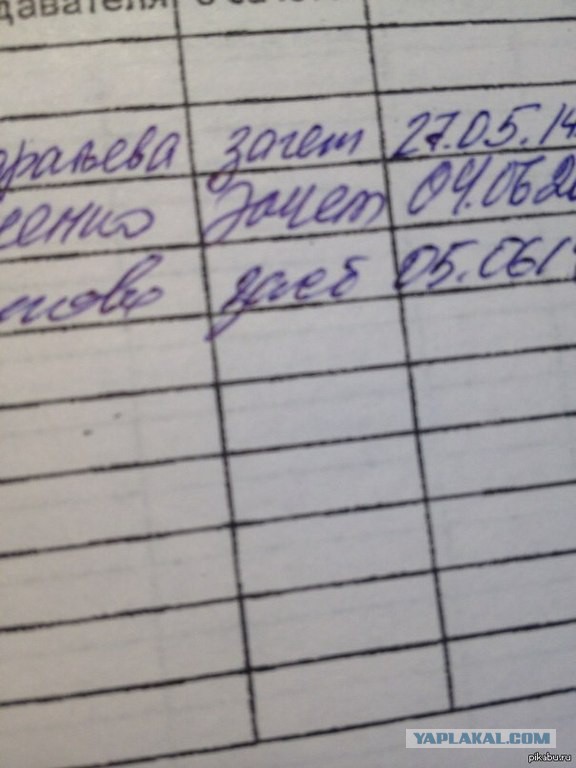 давателя о зачет
аральева зачет 27.05.14
ченко Зачет 04.06.20
нова заеб 05.0614
YAPLAKAL.COM
pikabu.ru